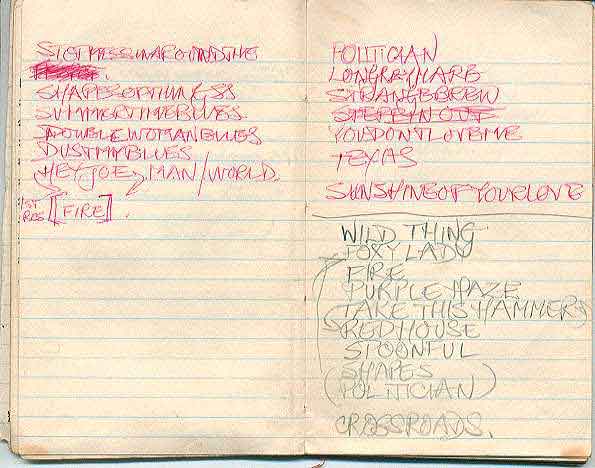 MESSINAROUNDTHE
SHAPESOFTHINGSS
SUMMERTIMEBLUES.
WOMANBLUES
DUSTMYBLUES
HEY JOE, MAN/WORLD.
1ST [FIRE].
POLITICIAN
LONGREYMARE
STRANGEBREW
STEPPIN OUT
YOUDONTLOVEME
TEXAS
SUNSHINEOFYOURLOVE
WILD THING
FOXY LADY
FIRE
PURPLE HAZE
TAKE THIS HAMMER
REDHOUSE
SPOONFUL
SHAPES
(POLITICIAN)
CROSSROADS.